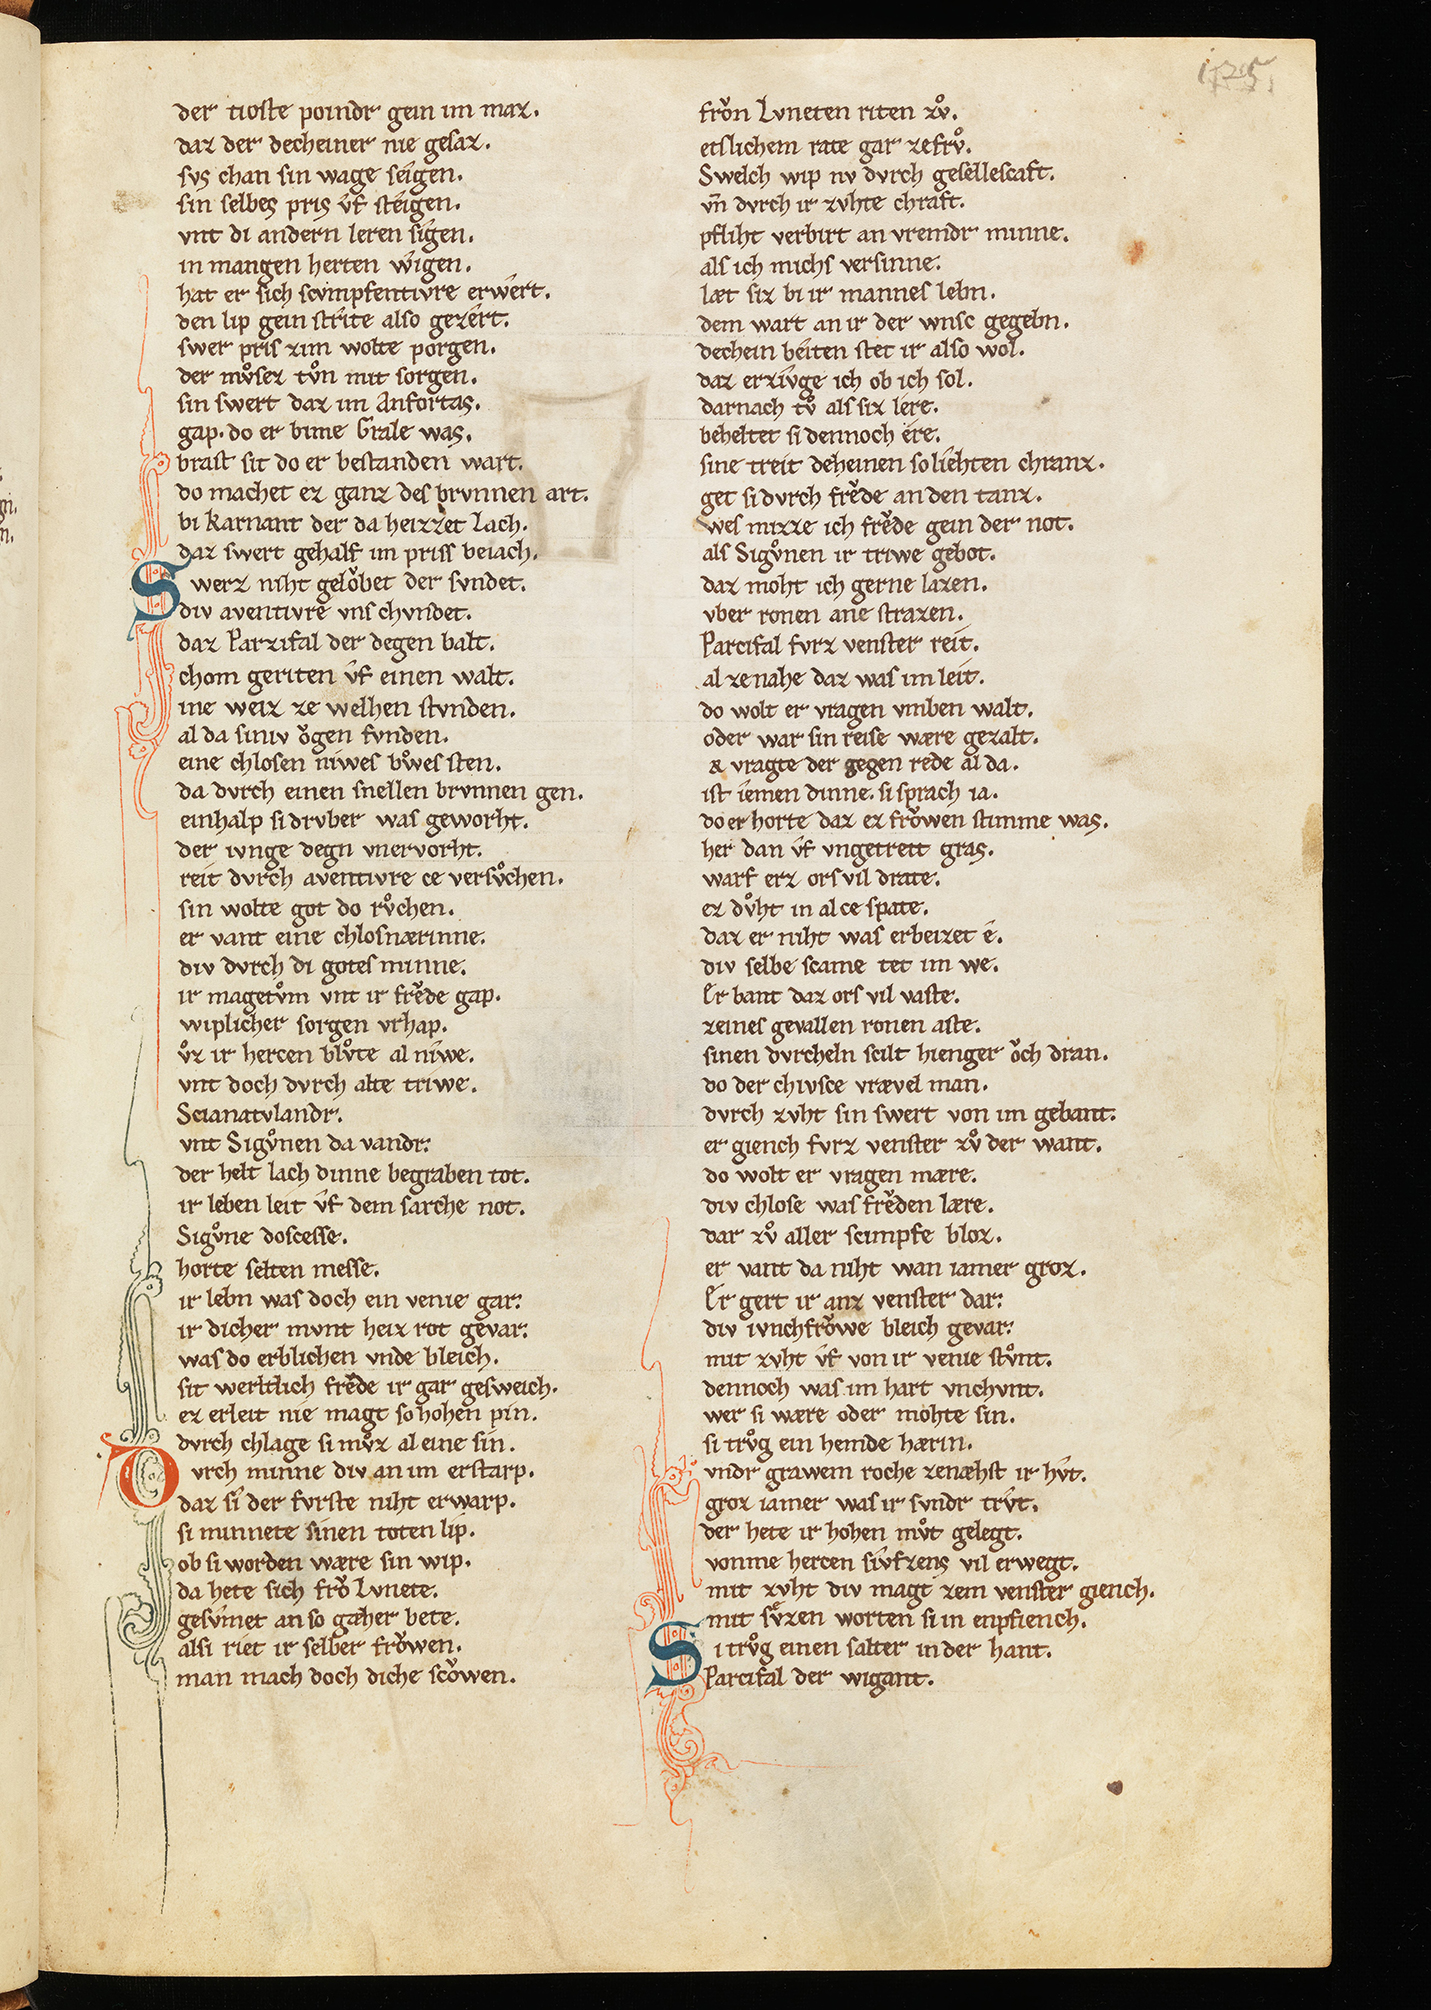 der tioste poindr gein im maz.
daz der decheiner nie gesaz.
sus chan sin wage seigen.
sin selbes pris vf steigen.
vnt di andern leren sigen.
in mangen herten wigen.
hat er sich scvmpfentivre erwert.
den lip gein strite also gezert.
swer pris zim wolte porgen.
der mvͦsez tvͦn mit sorgen.
sin swert daz im Anfortas.
gap. do er bime Grale was.
brast sit do er bestanden wart.
do machet ez ganz des brvnnen art.
bi Karnant der da heizzet Lach.
daz swert gehalf im priss beiach.
Swerz niht gelǒbet der svndet.
div aventivre vns chvndet.
daz Parzifal der degen balt.
chom geriten vf einen walt.
ine weiz ze welhen stvnden.
al da siniv ǒgen fvnden.
eine chlosen niwes bvͦwes sten.
da dvrch einen snellen brvnnen gen.
einhalp si drvber was geworht.
der ivnge degn vnervorht.
reit dvrch aventivre ce versvͦchen.
sin wolte got do rvͦchen.
er vant eine chlosnærinne.
div dvrch di gotes minne.
ir magetvͦm vnt ir frěde gap.
wiplicher sorgen vrhap.
vͦz ir hercen blvͦte al niwe.
vnt doch dvrch alte triwe.
Scianatvlandr.
vnt Sigvͦnen da vandr.
der helt lach dinne begraben tot.
ir leben leit vf dem sarche not.
Sigvͦne doscesse.
horte selten messe.
ir lebn was doch ein venie gar.
ir dicher mvnt heiz rot gevar.
was do erblichen vnde bleich.
sit werltlich frěde ir gar gesweich.
ez erleit nie magt so hohen pin.
dvrch chlage si mvͦz al eine sin.
Dvrch minne div an im erstarp.
daz si der fvrste niht erwarp.
si minnete sinen toten lip.
ob si worden wære sin wip.
da hete sich frǒ Lvnete.
gesvmet an so gæher bete.
alsi riet ir selber frǒwen.
man mach doch diche scǒwen.
frǒn Lvneten riten zvͦ.
etslichem rate gar zefrvͦ.
Swelch wip nv dvrch gesellescaft.
vn̄ dvrch ir zvhte chraft.
pfliht verbirt an vremdr minne.
als ich michs versinne.
læt siz bi ir mannes lebn.
dem wart an ir der wnsc gegebn.
dechein beiten stet ir also wol.
daz erzivge ich ob ich sol.
darnach tvͦ als siz lere.
beheltet si dennoch ere.
sine treit deheinen so liehten chranz.
get si dvrch frěde an den tanz.
wes mizze ich frěde gein der not.
als Sigvͦnen ir triwe gebot.
daz moht ich gerne lazen.
vber ronen ane strazen.
Parcifal fvrz venster reit.
al ze nahe daz was im leit.
do wolt er vragen vmben walt.
oder war sin reise wære gezalt.
er vragte der gegen rede al da.
ist iemen dinne. si sprach ia.
do er horte daz ez frǒwen stimme was.
her dan vf vngetrett gras.
warf erz ors vil drate.
ez dvͦht in al ce spate.
daz er niht was erbeizet e.
div selbe scame tet im we.
Er bant daz ors vil vaste.
zeines gevallen ronen aste.
sinen dvrcheln scilt hienger ǒch dran.
do der chivsce vrævel man.
dvrch zvht sin swert von im gebant.
er giench fvrz venster zvͦ der want.
do wolt er vragen mære.
div chlose was frěden lære.
dar zvͦ aller scimpfe bloz.
er vant da niht wan iamer groz.
Er gert ir anz venster dar.
div ivnchfrǒwe bleich gevar.
mit zvht vf von ir venie stvͦnt.
dennoch was im hart vnchvnt.
wer si wære oder mohte sin.
si trvͦg ein hemde hærin.
vndr grawem roche zenæhst ir hvt.
groz iamer was ir svndr trvt.
der hete ir hohen mvͦt gelegt.
vonme hercen sivfzens vil erwegt.
mit zvht div magt zem venster giench.
mit svͤzen worten si in enpfiench.
Si trvͦg einen salter in der hant.
Parcifal der wigant.